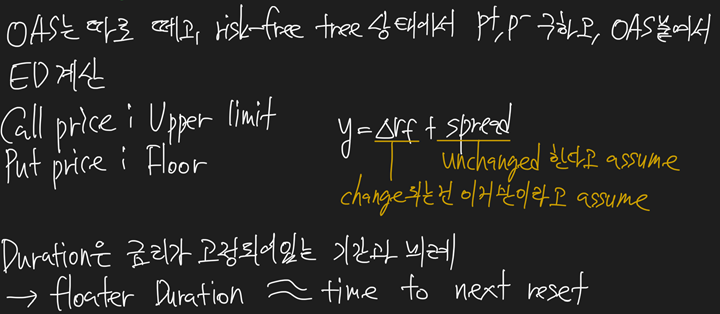 OAS는 따로 떼고, risk-free tree 상태에서 p+, p- 구하고, OAS붙여서
ED 계산
Call price : Upper limit
Put price : Floor
y = Δrf + spread
unchanged 한다고 assume
change되는건 이거만이라고 assume
Duration은 금리가 고정되어있는 기간과 비례
→ floater Duration ≈ time to next reset